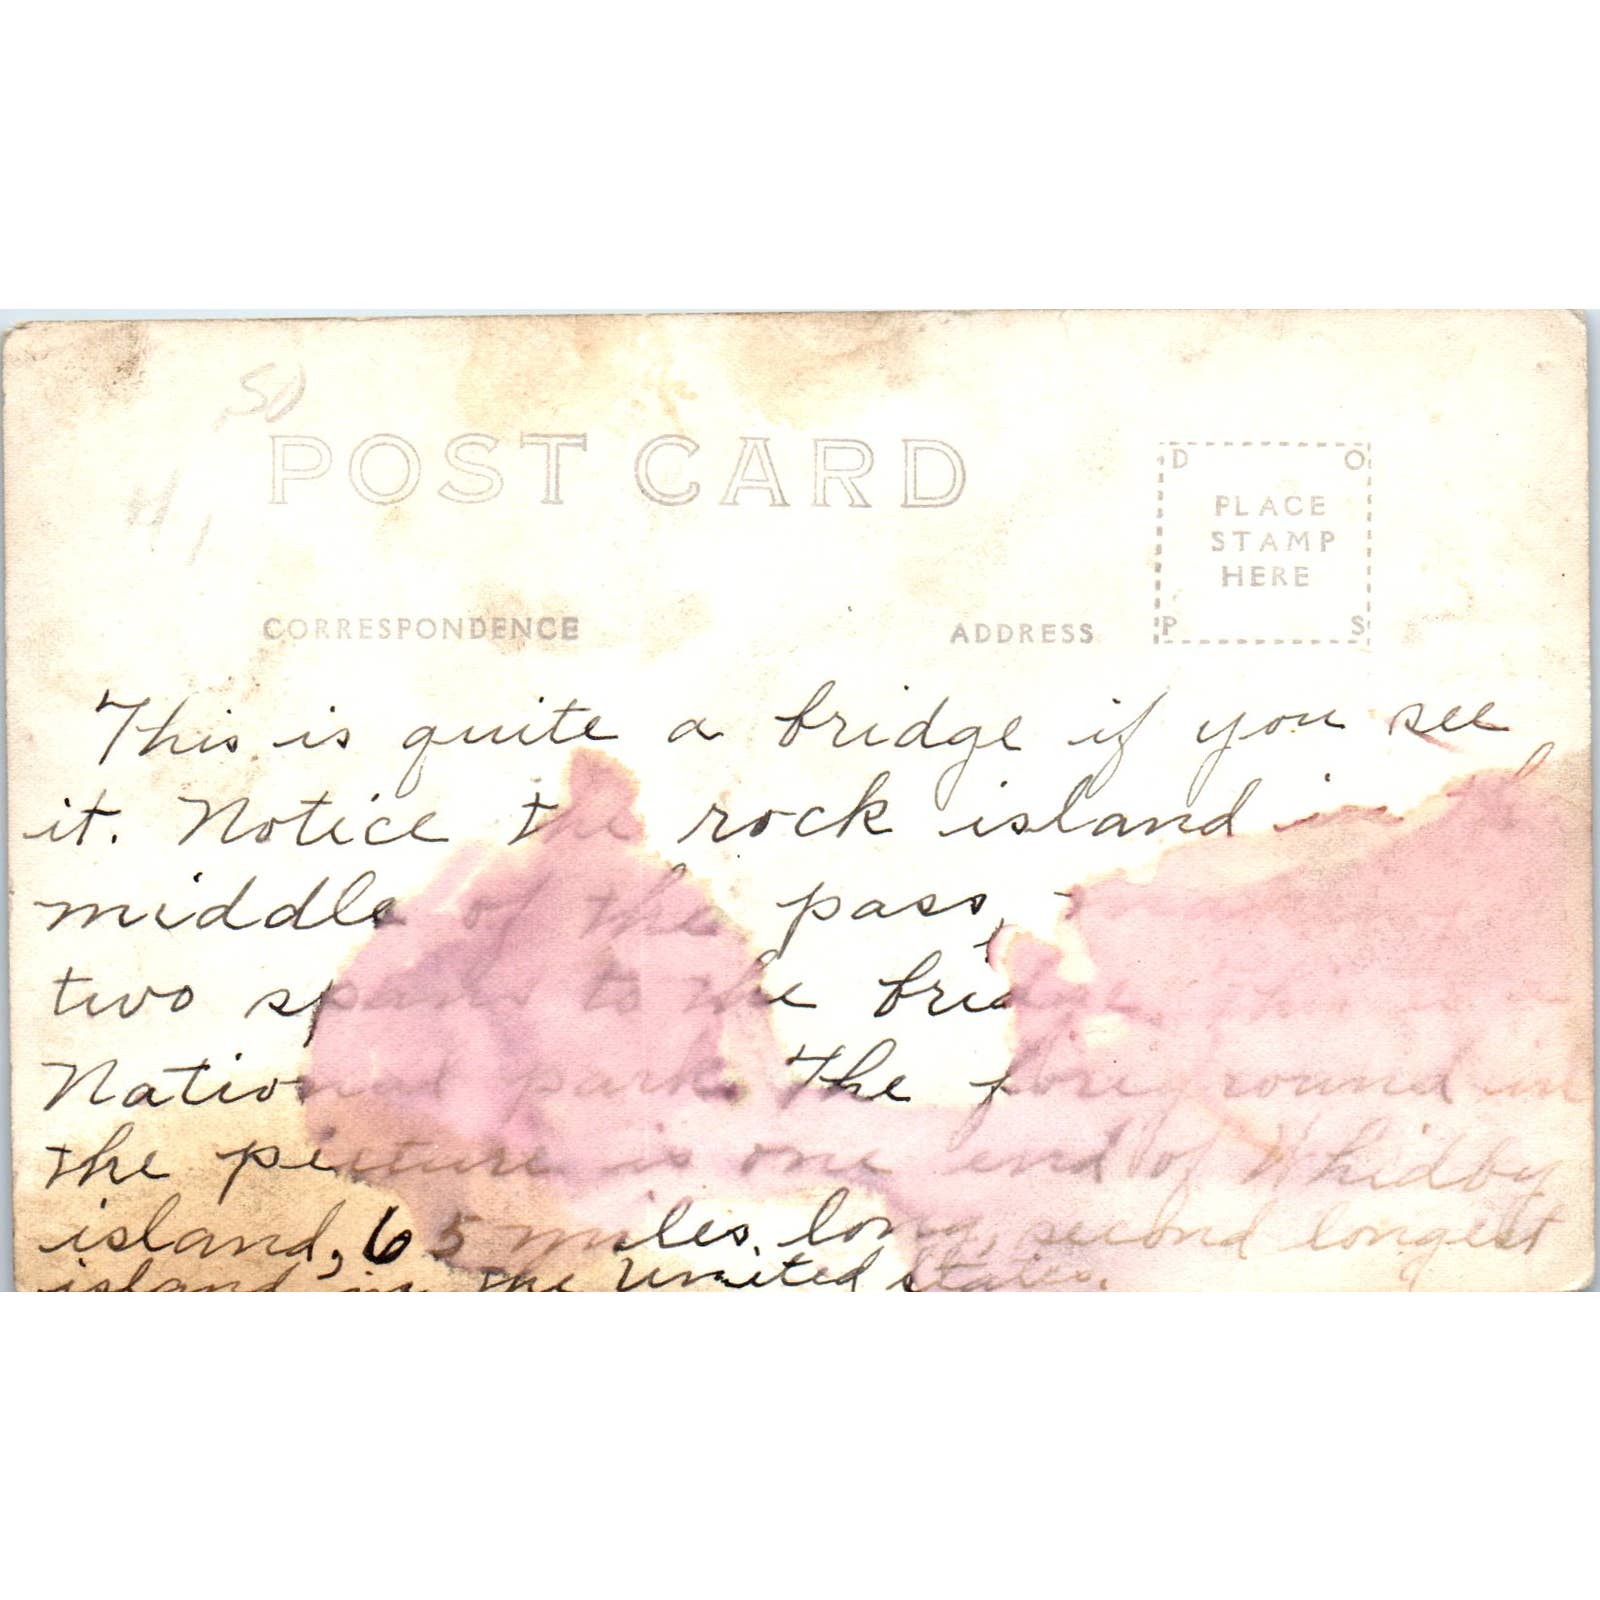 POST CARD
D O
PLACE
STAMP
HERE
P S
CORRESPONDENCE ADDRESS
This is quite a bridge if you see
it. Notice the rock island in the
middle of the pass,
two spans to the bridge. This is a
National park. The foreground in
the picture is one end of Whidby
island, 65 miles long, second longest
island in the United States.